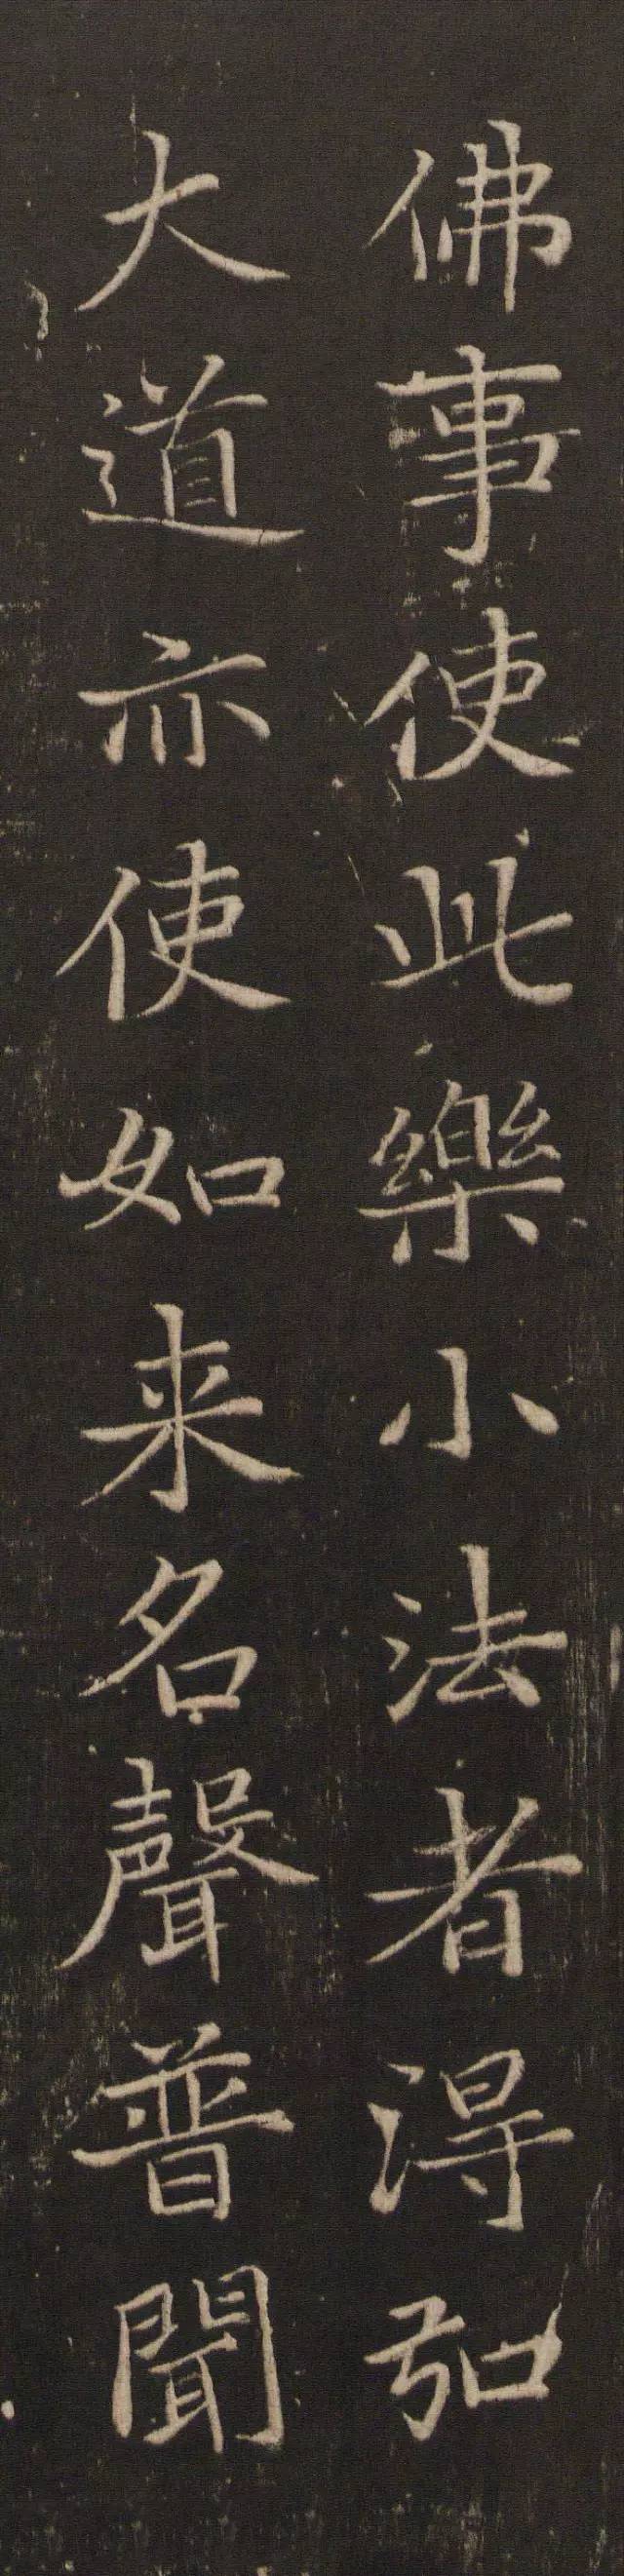 佛事使此樂小法者得弘
大道亦使如来名聲普聞